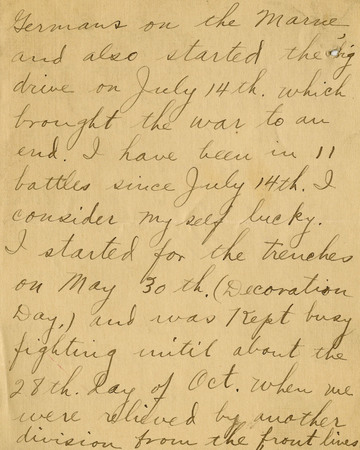 Germans on the Marne,
and also started the big
drive on July 14th. which
brought the war to an
end. I have been in 11
battles since July 14th. I
consider myself lucky.
I started for the trenches
on May 30th. (Decoration
Day.) and was Kept busy
fighting until about the
28th. Day of Oct. when we
were relieved by another
division from the front lines